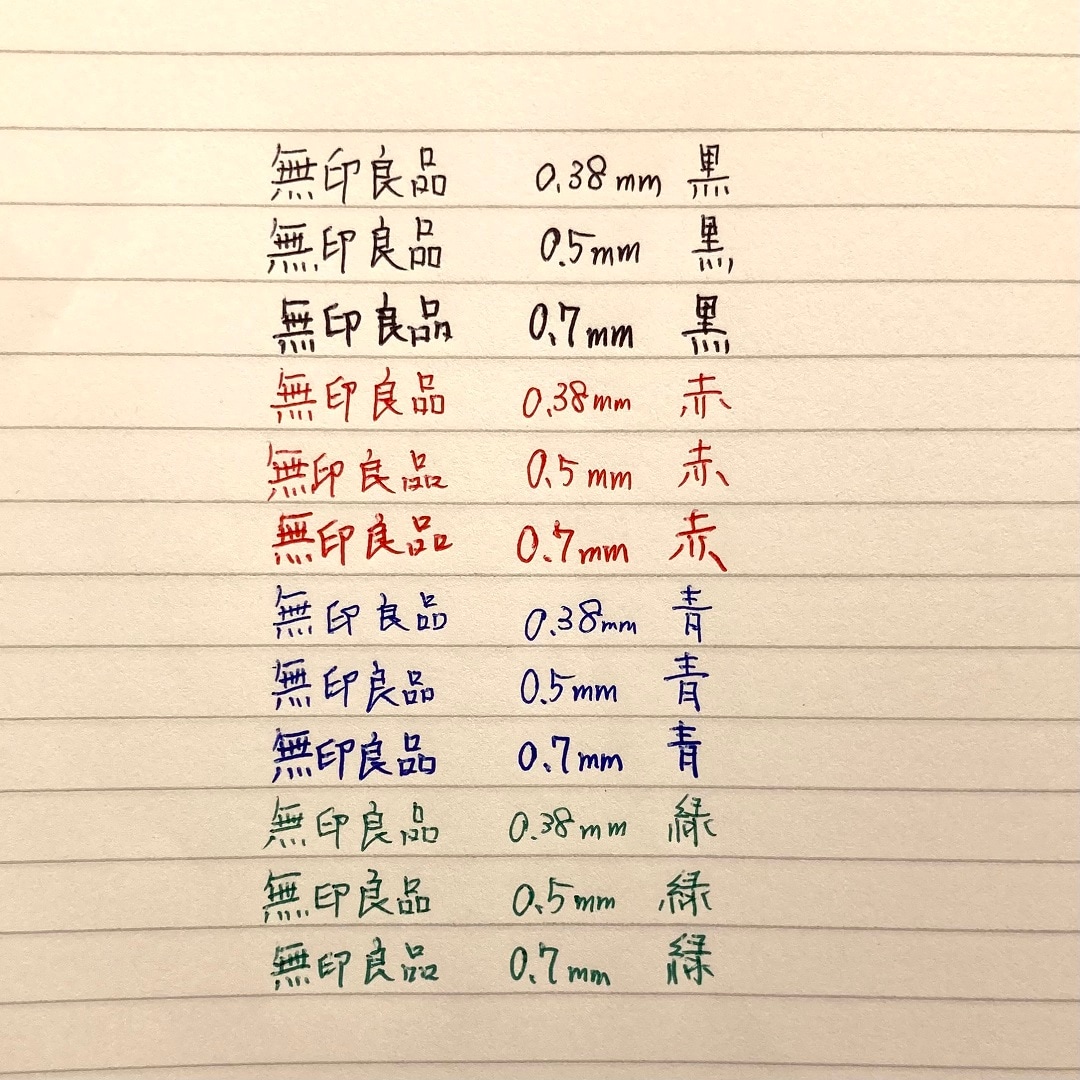 無印良品 0.38mm 黒
無印良品 0.5mm 黒
無印良品 0.7mm 黒
無印良品 0.38mm 赤
無印良品 0.5mm 赤
無印良品 0.7mm 赤
無印良品 0.38mm 青
無印良品 0.5mm 青
無印良品 0.7mm 青
無印良品 0.38mm 緑
無印良品 0.5mm 緑
無印良品 0.7mm 緑